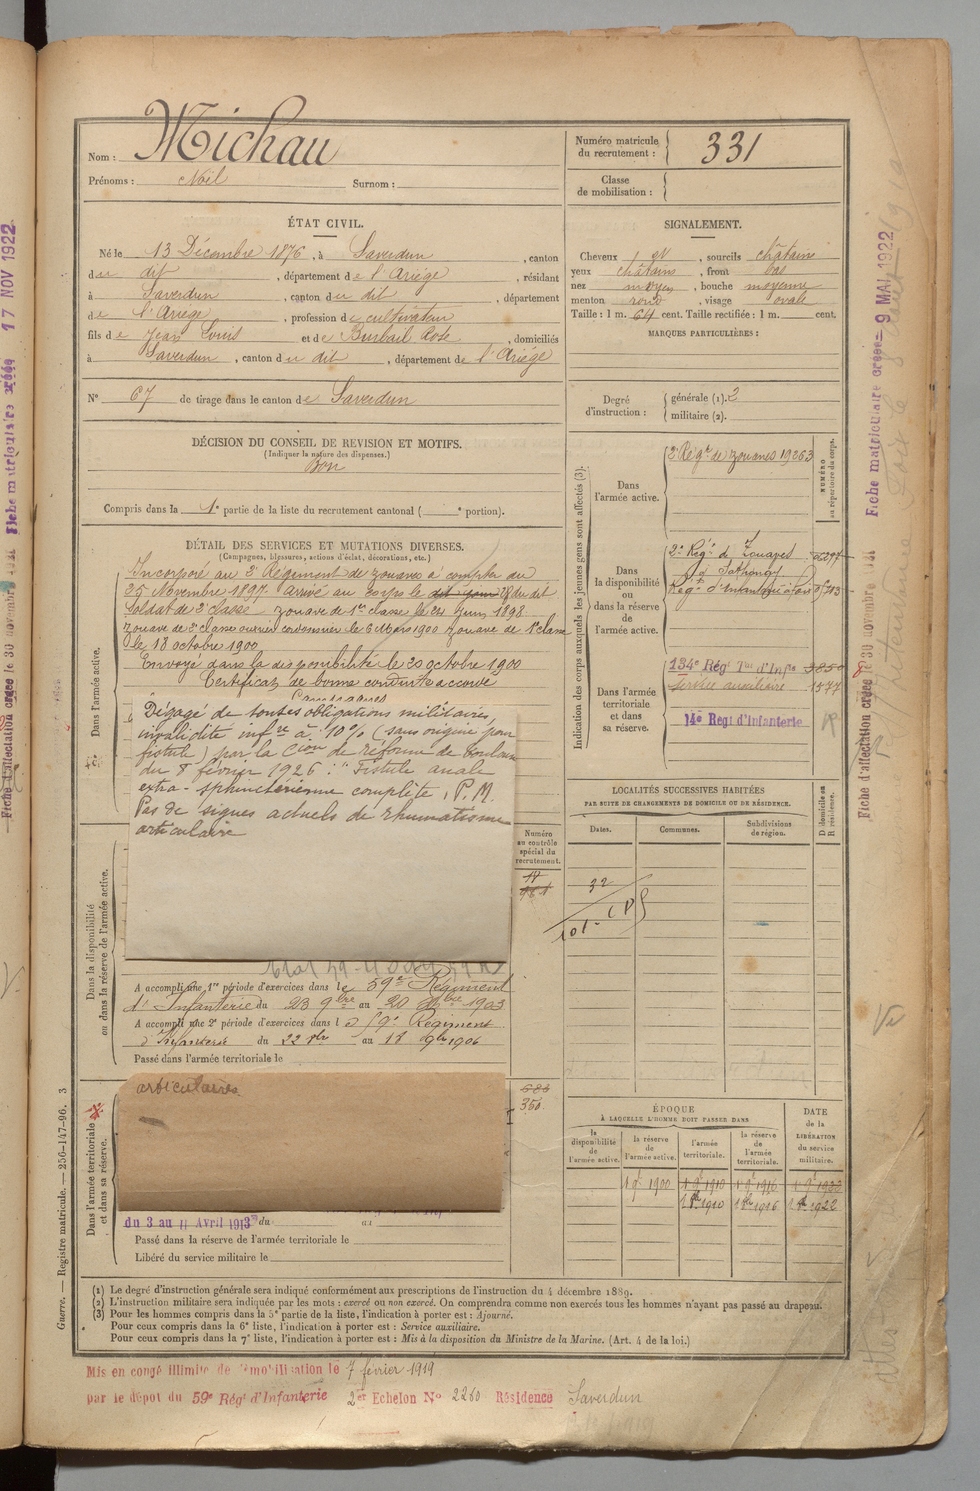 Nom : Michau
Prénoms : Noël Surnom :
Numéro matricule du recrutement : 331
Classe de mobilisation :
ÉTAT CIVIL.
Né le 13 Décembre 1876, à Saverdun, canton
du dit, département de l'Ariège, résidant
à Saverdun, canton du dit, département
de l'Ariège, profession de cultivateur
fils de Jean Louis et de Rose, domiciliés
à Saverdun, canton du dit, département de l'Ariège
N° 67 de tirage dans le canton de Saverdun
SIGNALEMENT.
Cheveux, sourcils châtains
yeux châtains, front bas
nez moyen, bouche moyenne
menton rond, visage ovale
Taille : 1 m. 64 cent. Taille rectifiée : 1 m. cent.
MARQUES PARTICULIÈRES :
Degré d'instruction : générale (1). 2
militaire (2).
DÉCISION DU CONSEIL DE REVISION ET MOTIFS.
(Indiquer la nature des dispenses.)
Bon
Compris dans la 1e partie de la liste du recrutement cantonal ( e portion).
DÉTAIL DES SERVICES ET MUTATIONS DIVERSES.
(Campagnes, blessures, actions d'éclat, décorations, etc.)
Dans l'armée active.
Incorporé au 2e Régiment de zouaves à compter du
25 Novembre 1897. Arrivé au corps le dit jour 28 du dit
Soldat de 2e classe zouave de 1re classe le 21 Juin 1898
Zouave de 2e classe ouvrier cordonnier le 6 Mars 1900 Zouave de 1e classe
le 18 octobre 1900
Envoyé dans la disponibilité le 20 octobre 1900
Certificat de bonne conduite accordé
Campagnes
Dégagé de toutes obligations militaires,
invalidité infre à 10% (sans origine pour
fistule) par la Cion de réforme de Toulouse
du 8 février 1926 : "Fistule anale
extra-sphinctérienne complète, P.M.
Pas de signes actuels de rhumatisme
articulaire
Indication des corps auxquels les jeunes gens sont affectés (3).
NUMÉRO au répertoire du corps.
Dans l'armée active.
2e Régt de zouaves 19263
Dans la disponibilité ou dans la réserve de l'armée active.
2e Régt de Zouaves
Régt d'Infanterie à Foix
Dans l'armée territoriale et dans sa réserve.
134e Régt Tal d'Infie 3850
Service auxiliaire 1577
14e Regt d'Infanterie
LOCALITÉS SUCCESSIVES HABITÉES
PAR SUITE DE CHANGEMENTS DE DOMICILE OU DE RÉSIDENCE.
Dates. Communes. Subdivisions de région. D domicile ou R résidence.
32
101
Numéro au contrôle spécial du recrutement.
Dans la disponibilité ou dans la réserve de l'armée active.
A accompli une 1re période d'exercices dans le 59e Régiment
d'Infanterie du 23 9bre au 20 Xbre 1903
A accompli une 2e période d'exercices dans le 59e Régiment
d'Infanterie du 22 8bre au 18 9bre 1906
Passé dans l'armée territoriale le
Dans l'armée territoriale et dans sa réserve.
articulaires
350
du 3 au 11 Avril 1913 du au
Passé dans la réserve de l'armée territoriale le
Libéré du service militaire le
ÉPOQUE
À LAQUELLE L'HOMME DOIT PASSER DANS
la disponibilité de l'armée active. la réserve de l'armée active. l'armée territoriale. la réserve de l'armée territoriale.
DATE de la LIBÉRATION du service militaire.
1 9e 1900 1 9e 1910 1 9e 1916 1 9e 1922
1 8bre 1910 1 8bre 1916 1 8bre 1922
(1) Le degré d'instruction générale sera indiqué conformément aux prescriptions de l'instruction du 4 décembre 1889.
(2) L'instruction militaire sera indiquée par les mots : exercé ou non exercé. On comprendra comme non exercés tous les hommes n'ayant pas passé au drapeau.
(3) Pour les hommes compris dans la 5e partie de la liste, l'indication à porter est : Ajourné.
Pour ceux compris dans la 6e liste, l'indication à porter est : Service auxiliaire.
Pour ceux compris dans la 7e liste, l'indication à porter est : Mis à la disposition du Ministre de la Marine. (Art. 4 de la loi.)
Mis en congé illimité de démobilisation le 7 février 1919
par le dépôt du 59e Régt d'Infanterie 2er Echelon N° 2260 Résidence Saverdun
Guerre. — Registre matricule. — 256-147-96. 3
Fiche matriculaire créée 9 MAI 1922
Fiche d'affectation créée le 30 novembre
Fiche matriculaire créée 17 NOV 1922
Fiche d'affectation créée le 30 novembre